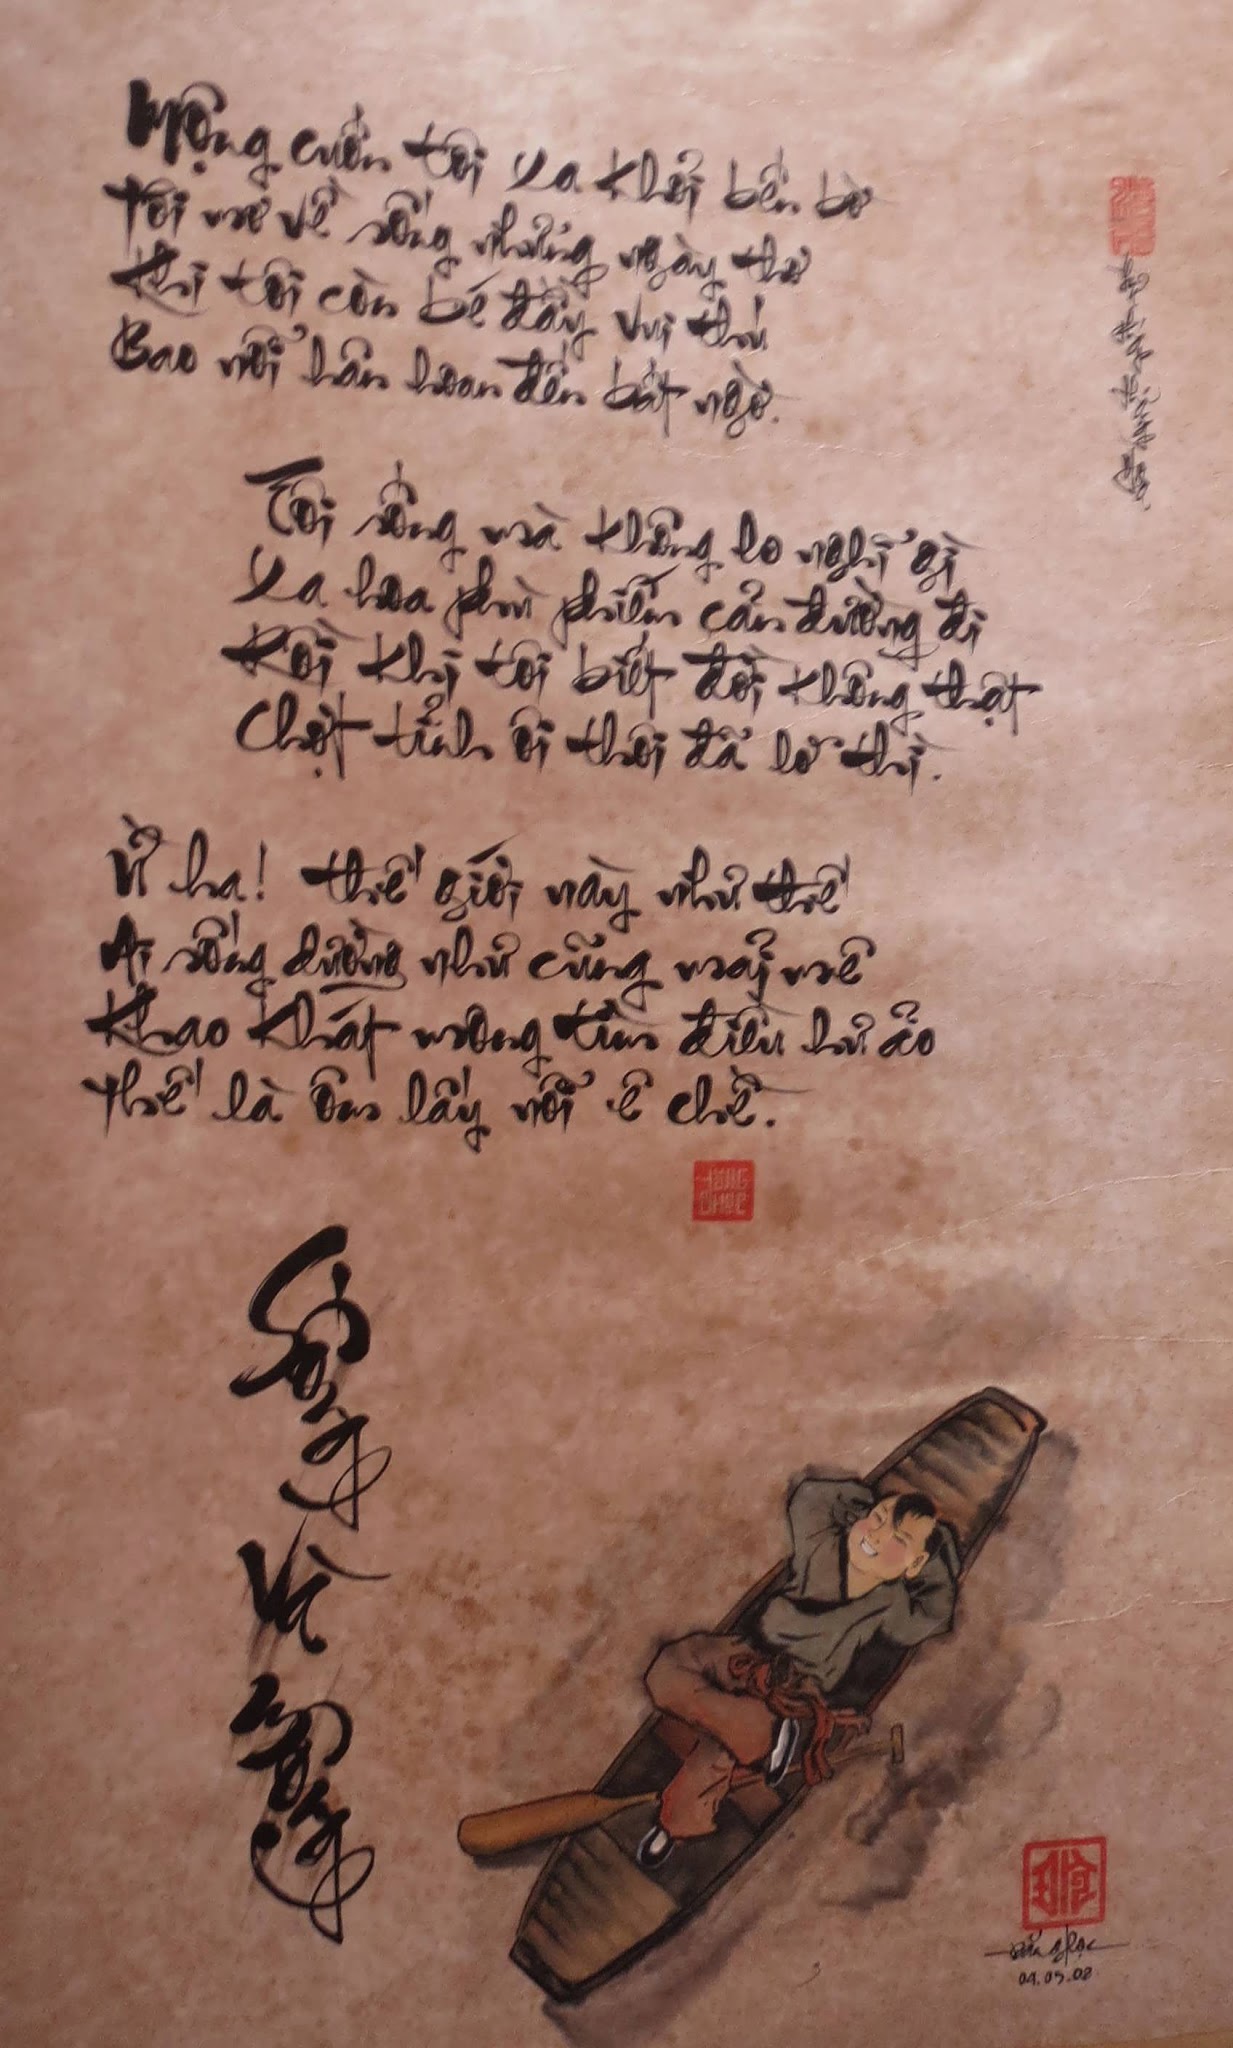 Mộng cuốn tôi xa khỏi bến bờ
Tôi mơ về sống những ngày thơ
Khi tôi còn bé đầy vui thú
Bao nỗi hân hoan đến bất ngờ.
Tôi sống mà không lo nghĩ gì
Xa hoa phù phiếm cản đường đi
Rồi khi tôi biết đời không thật
Chợt tỉnh ôi thôi đã lỡ thì.
Ừ ha! thế giới này như thế
Ai sống dường như cũng mải mê
Khao khát mong tìm điều hư ảo
Thế là ôm lấy nỗi ê chề.
Sống
Và
Mộng